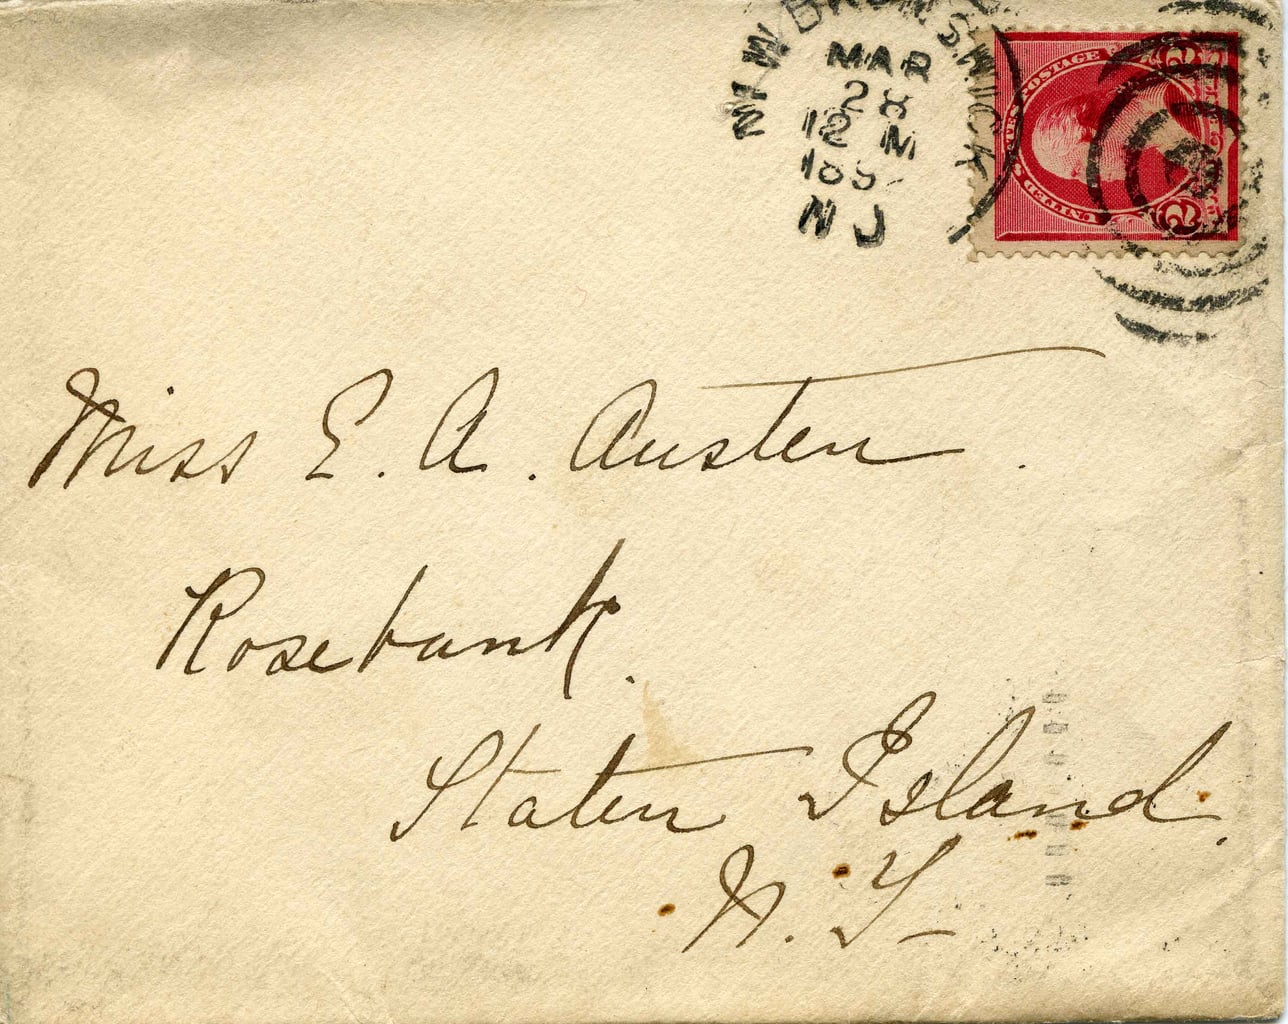 NEW BRUNSWICK
MAR
28
12 M
189
N J
UNITED STATES POSTAGE
2 2
Miss E. A. Austen.
Rosebank.
Staten Island.
N. Y